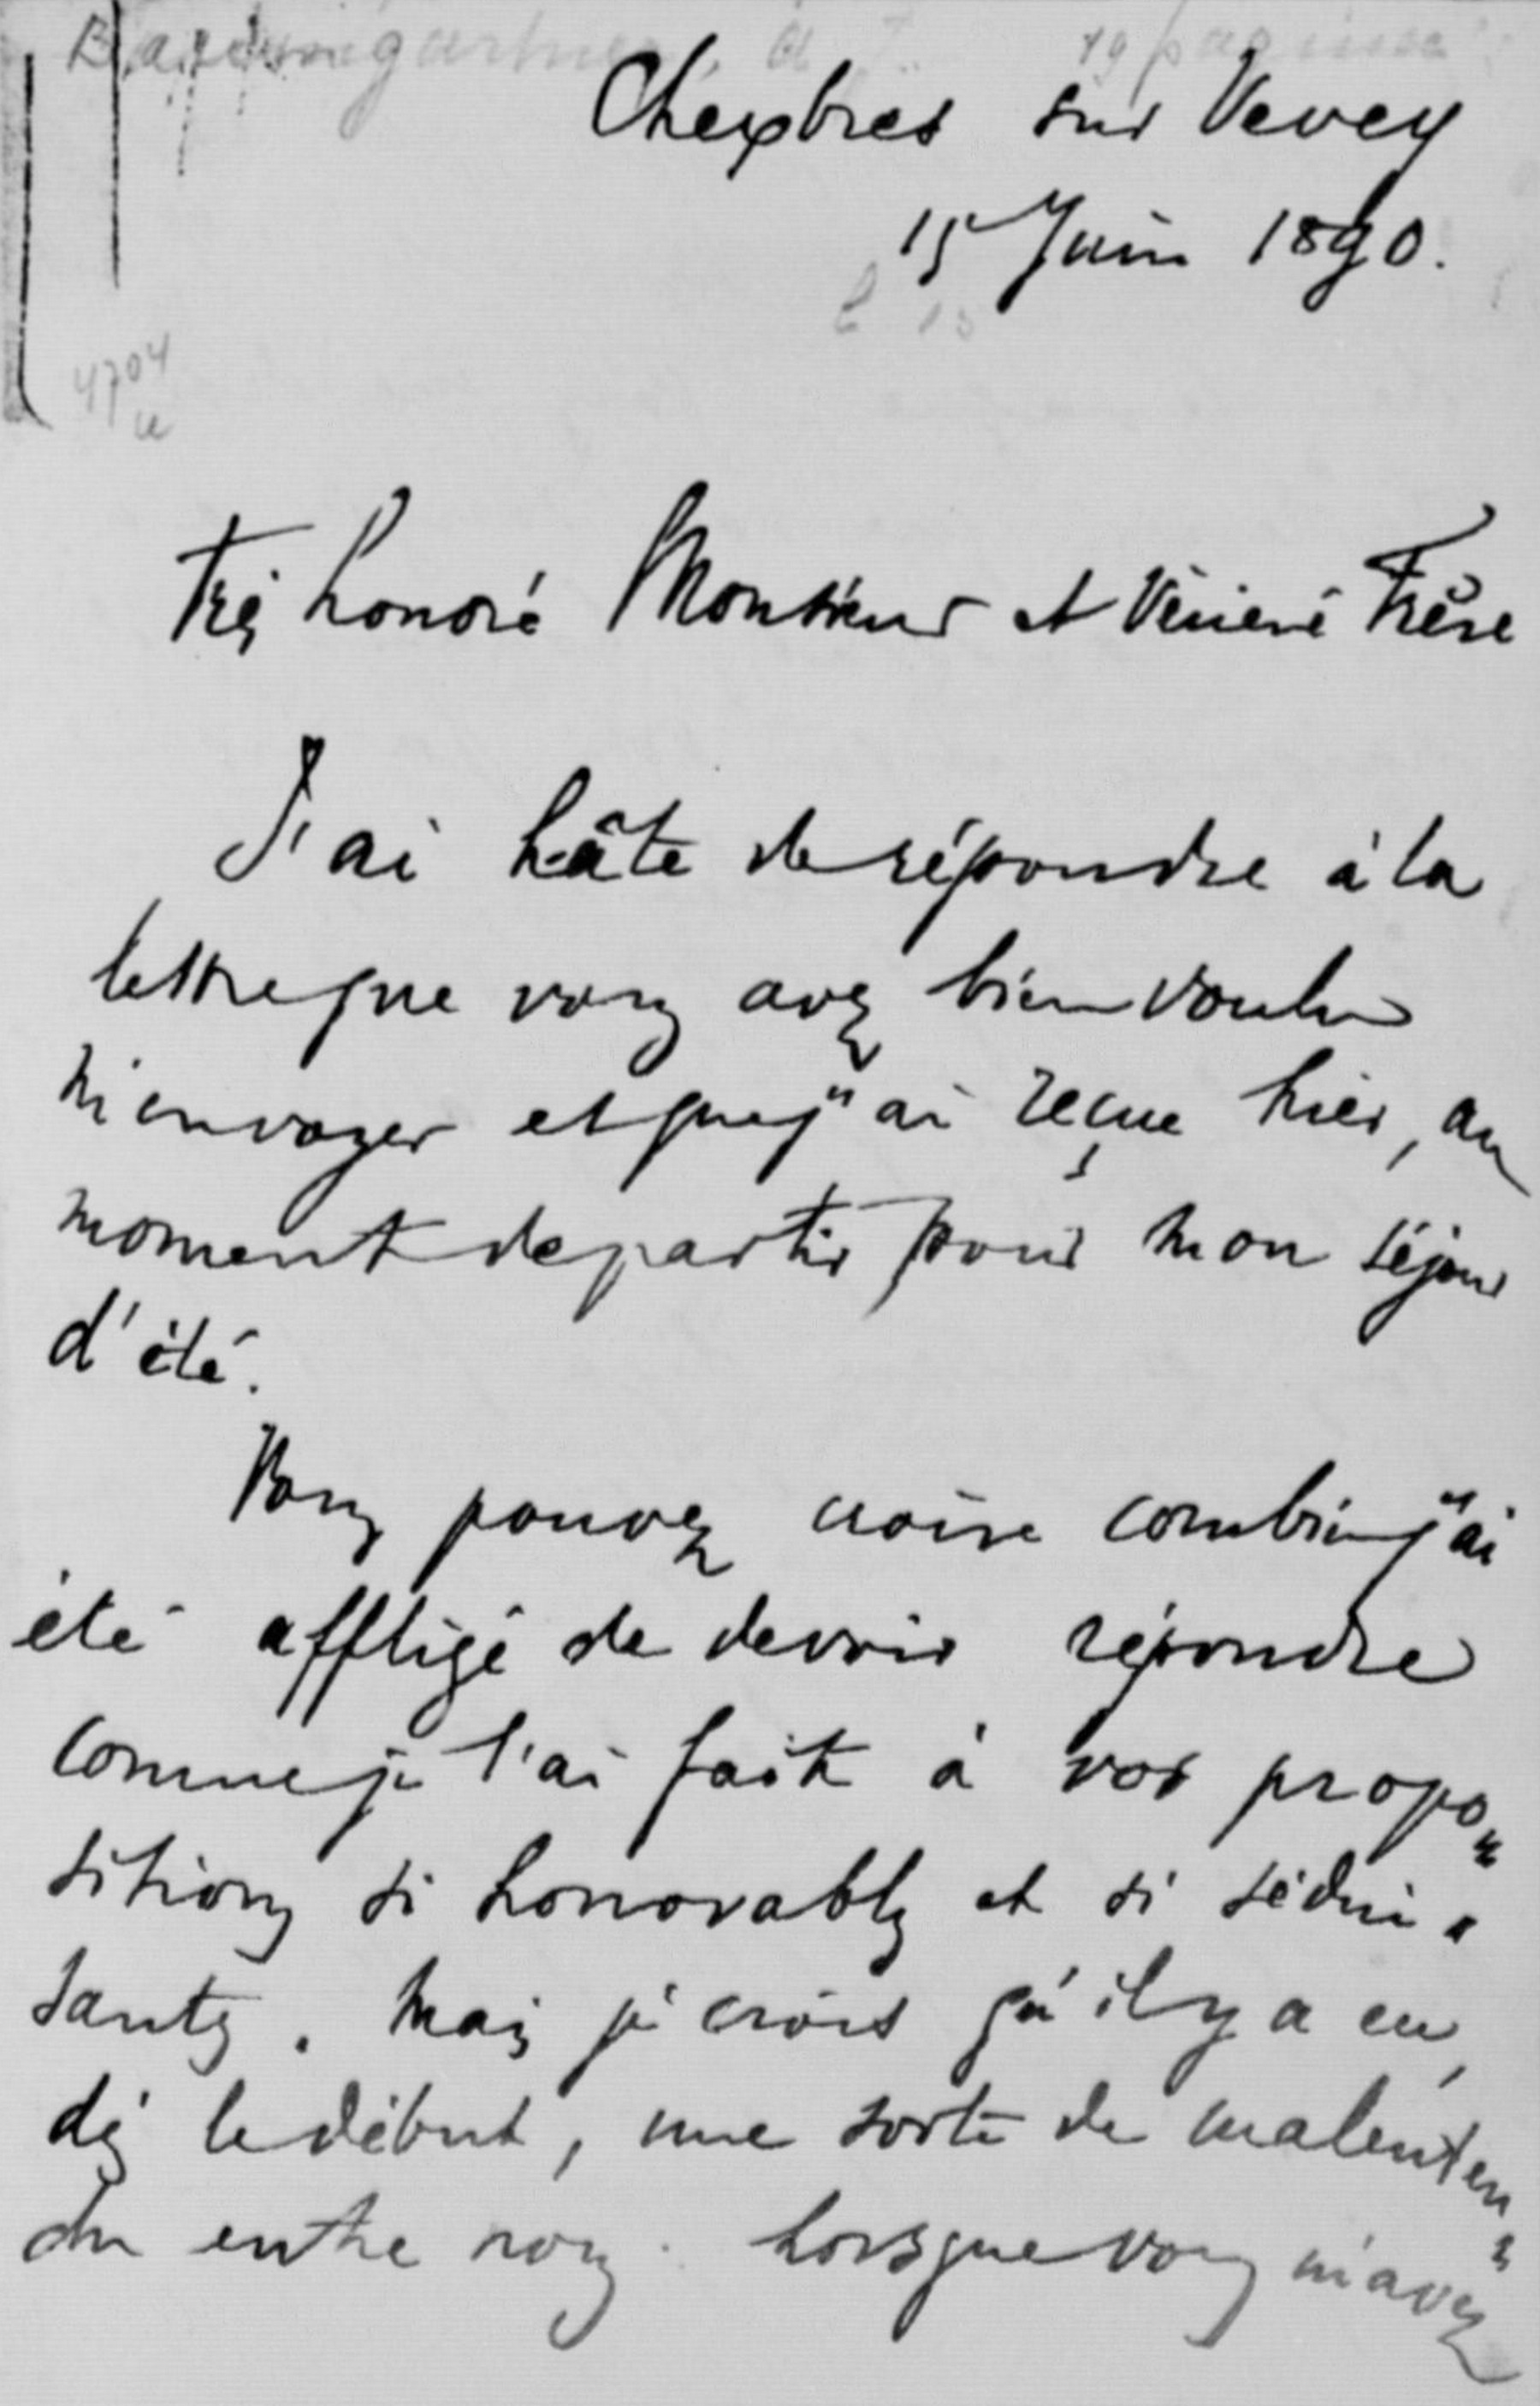 Chexbres sur Vevey
15 Juin 1890.
4704
Très honoré Monsieur et Vénéré Frère
J'ai hâte de répondre à la
lettre que vous avez bien voulu
m'envoyer et que j'ai reçue hier, au
moment de partir pour mon séjour
d'été.
Vous pouvez croire combien j'ai
été affligé de devoir répondre
comme je l'ai fait à vos propo=
sitions si honorables et si sédui=
santes. Mais je crois qu'il y a eu,
dès le début, une sorte de malenten=
du entre nous. Lorsque vous m'avez